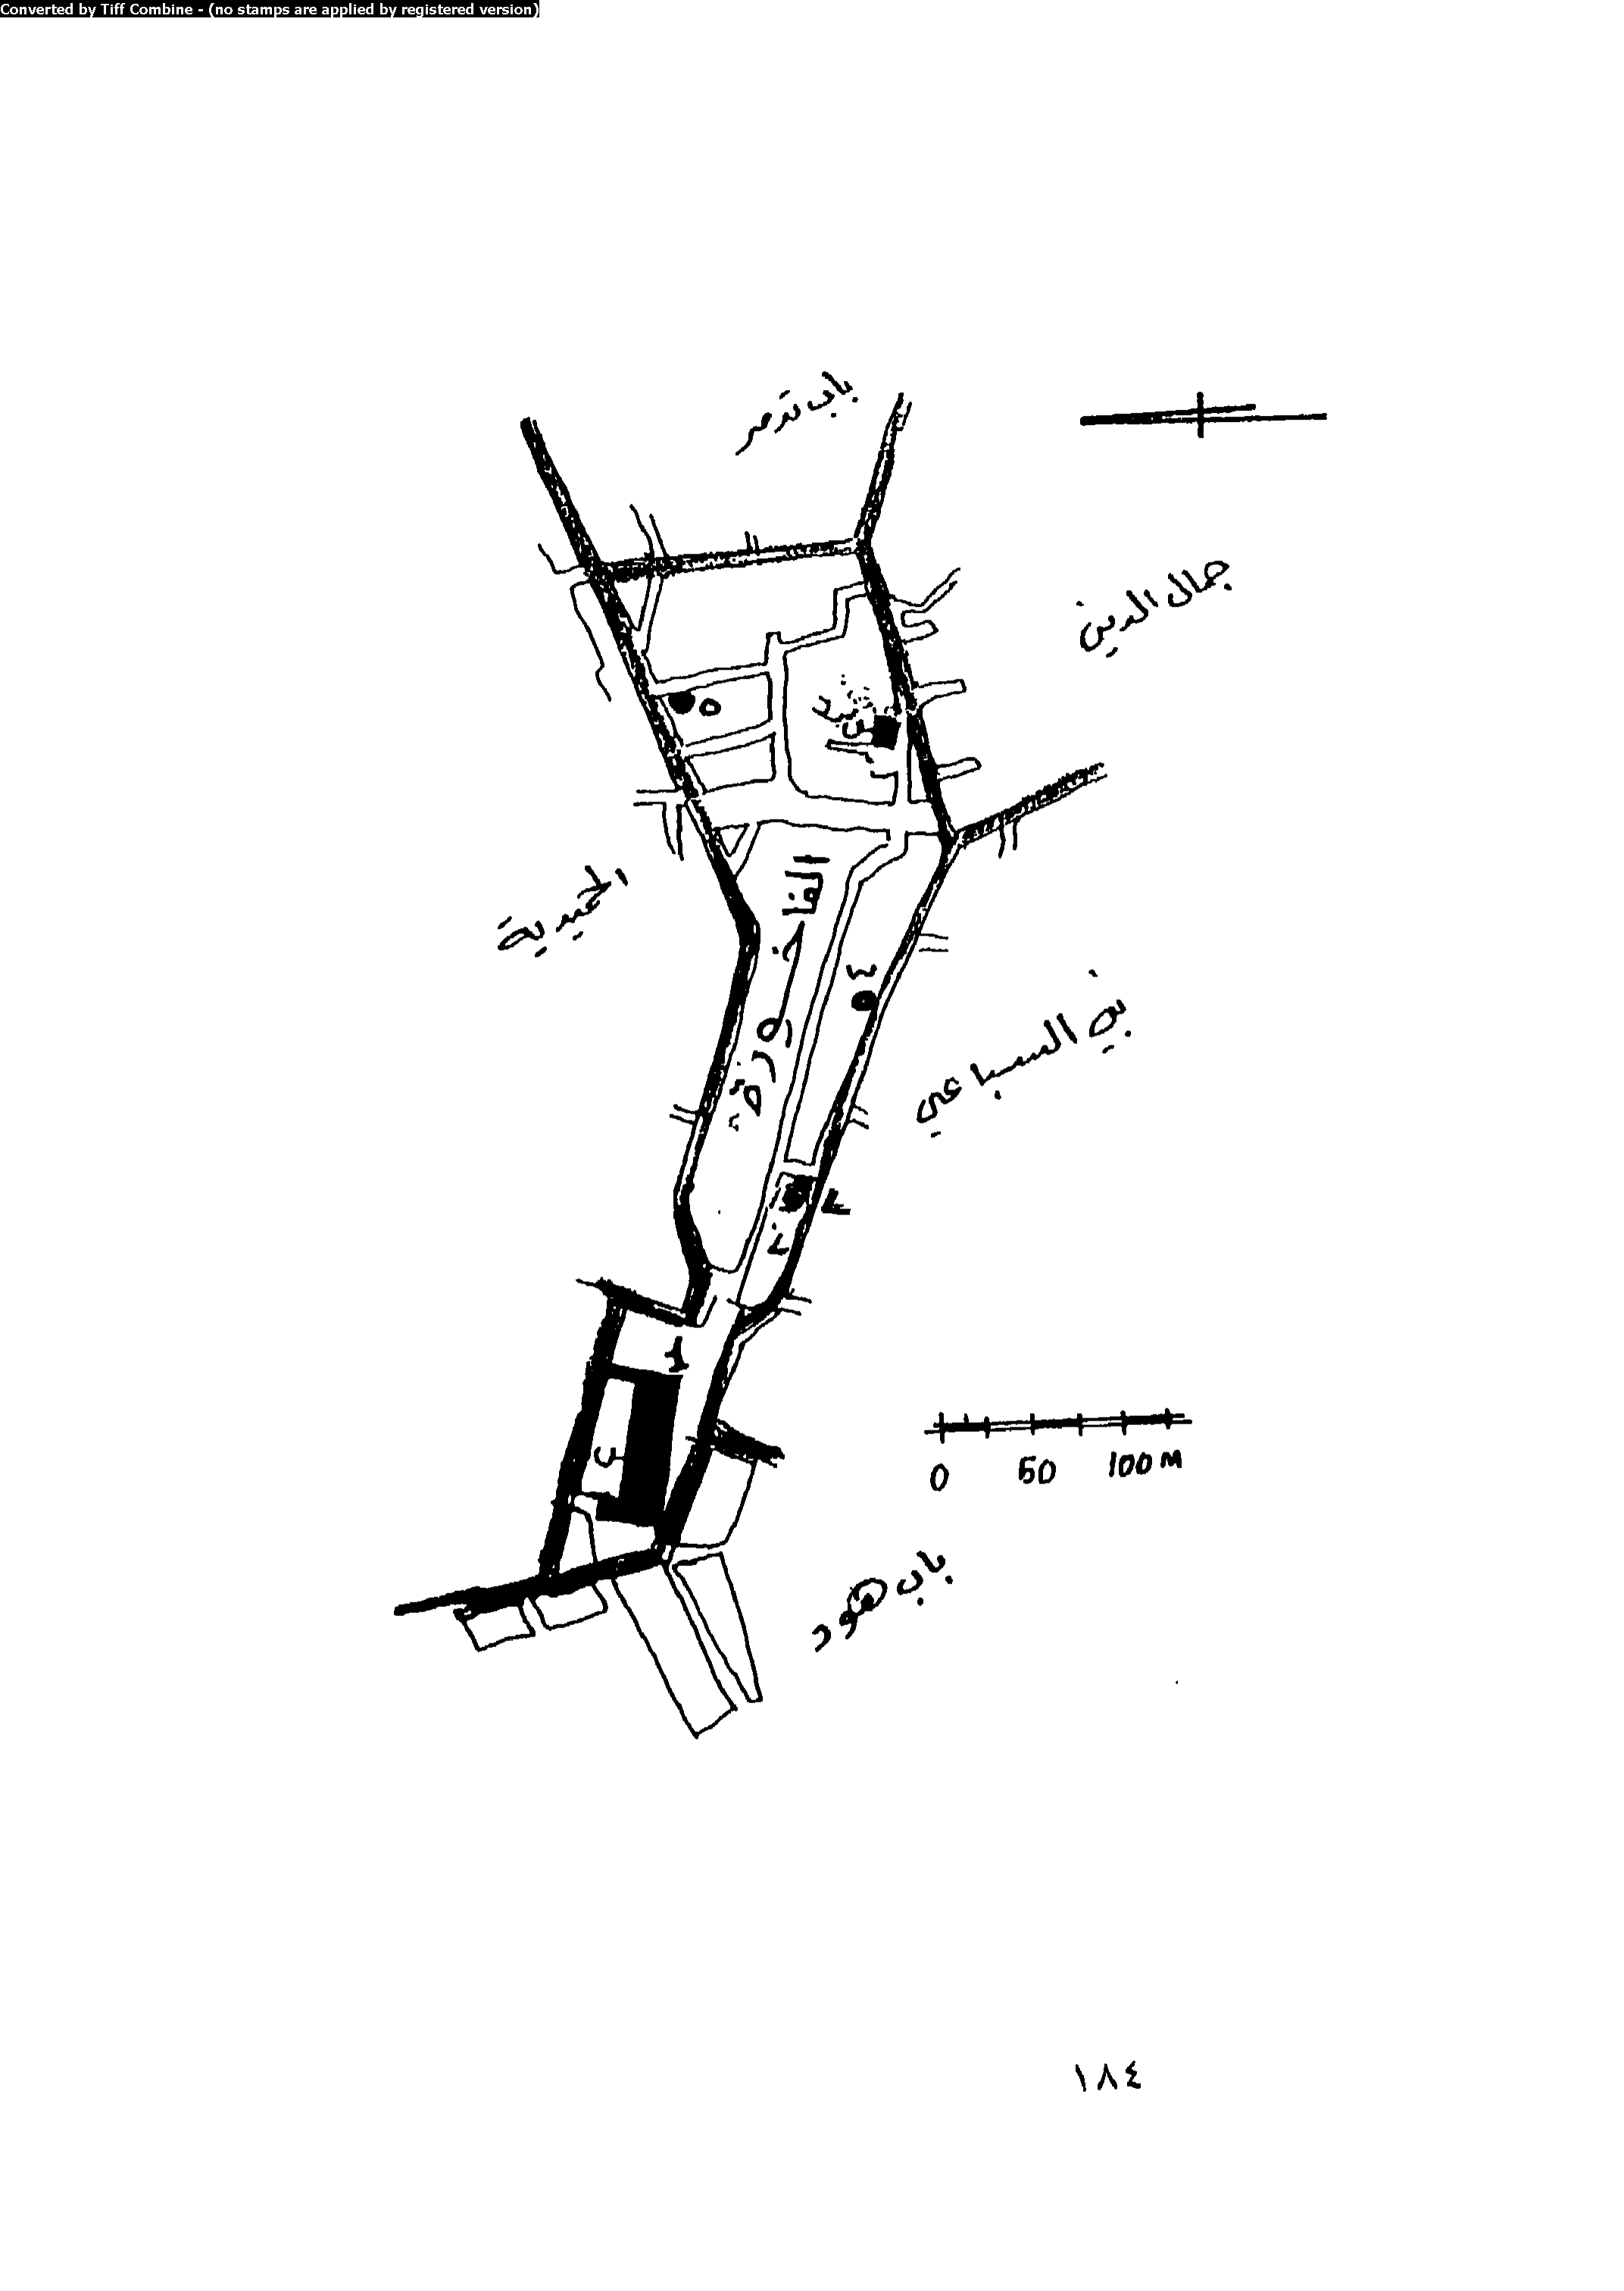 Converted by Tiff Combine - (no stamps are applied by registered version)
باب تدمر
جمال الدين
٥
الحميدية
الفاخورة
٤
بني السباعي
0 50 100 M
باب هود
١٨٤